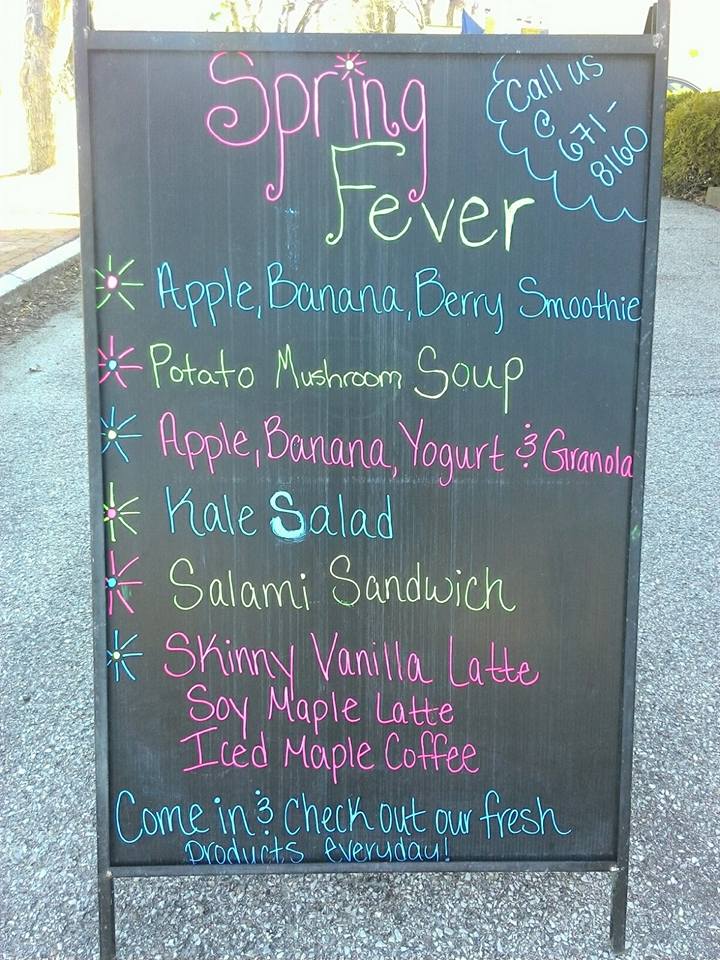 Spring
Fever
Call us
@ 671-
8160
Apple, Banana, Berry Smoothie
Potato Mushroom Soup
Apple, Banana, Yogurt & Granola
Kale Salad
Salami Sandwich
Skinny Vanilla Latte
Soy Maple Latte
Iced Maple Coffee
Come in & check out our fresh
products everyday!